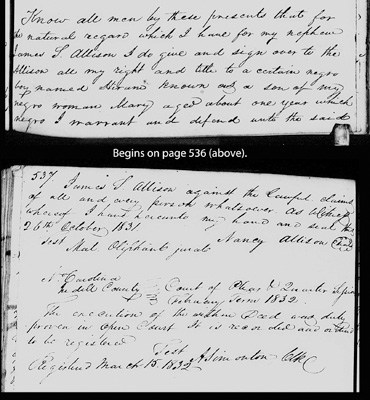 Know all men by these presents that for
the natural regard which I have for my nephew
James S. Allison I do give and sign over to the
Allison all my right and title to a certain negro
boy named Hiram known as a son of my
negro woman Mary aged about one year which
negro I warrant and defend unto the said
Begins on page 536 (above).
537
James S Allison against the lawful claims
of all and every person whatsoever As Witness
whereof I have hereunto my hand and seal this
26th October 1831
Test Nancy Allison
Oliphant jurate
N Carolina
Iredell County Court of Pleas & Quarter Session
February Term 1832.
The execution of the within Deed was duly
proven in Open Court It is recorded and ordered
to be registered
Test A Simonton Clk
Registered March 15 1832